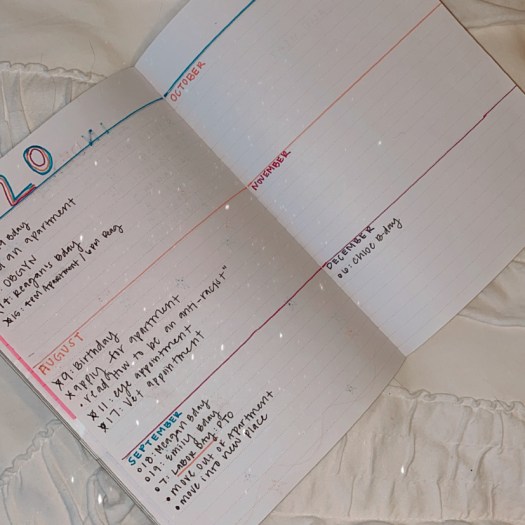 LO
Bday
an apartment
OBGYN
Reagan's Bday
Apartment /
AUGUST
x 9: Birthday
x apply for apartment
• read "How to be an anti-racist"
x 11: eye appointment
x 17: Vet appointment
SEPTEMBER
○ 18: Meagan Bday
○ 19: Emily Bday
○ 7: LABOR DAY: PTO
• move out of apartment
• move into new place
OCTOBER
NOVEMBER
DECEMBER
○ 6: Chloe Bday